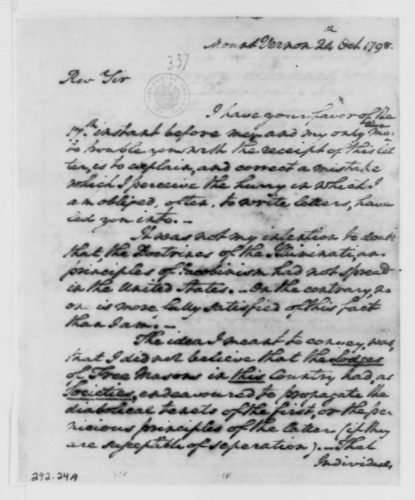 Mount Vernon 24th Oct. 1798.
337
Revd Sir
I have your favor of the
17th instant before me; and my only motive
to trouble you with the receipt of this let
ter, is to explain, and correct a mistake
which I perceive the hurry in which I
am obliged, often, to write letters, have
led you into.—
It was not my intention to doubt
that, the Doctrines of the Illuminati, and
principles of Jacobinism had not spread
in the United States. On the contrary, no
one is more fully satisfied of this fact
than I am.—
The idea I meant to convey, was,
that I did not believe that the Lodges
of Free Masons in this Country had, as
Societies, endeavoured to propagate the
diabolical tenets of the first, or the per
nicious principles of the latter (if they
are susceptible of seperation).— That
Individuals
292-24A